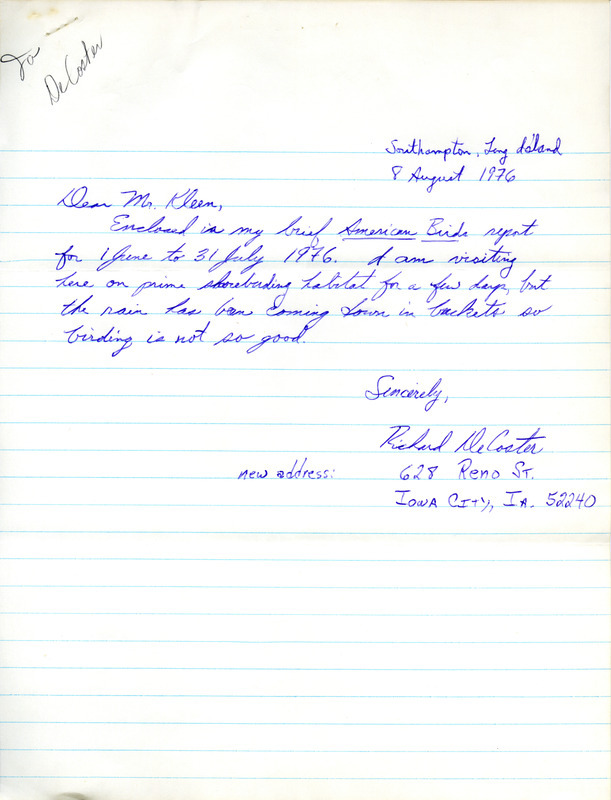 To
DeCoster
Southampton, Long Island
8 August 1976
Dear Mr. Kleen,
Enclosed is my brief American Birds report
for 1 June to 31 July 1976. I am visiting
here on prime shorebirding habitat for a few days, but
the rain has been coming down in buckets so
birding is not so good.
Sincerely,
Richard DeCoster
new address: 628 Reno St.
Iowa City, Ia. 52240